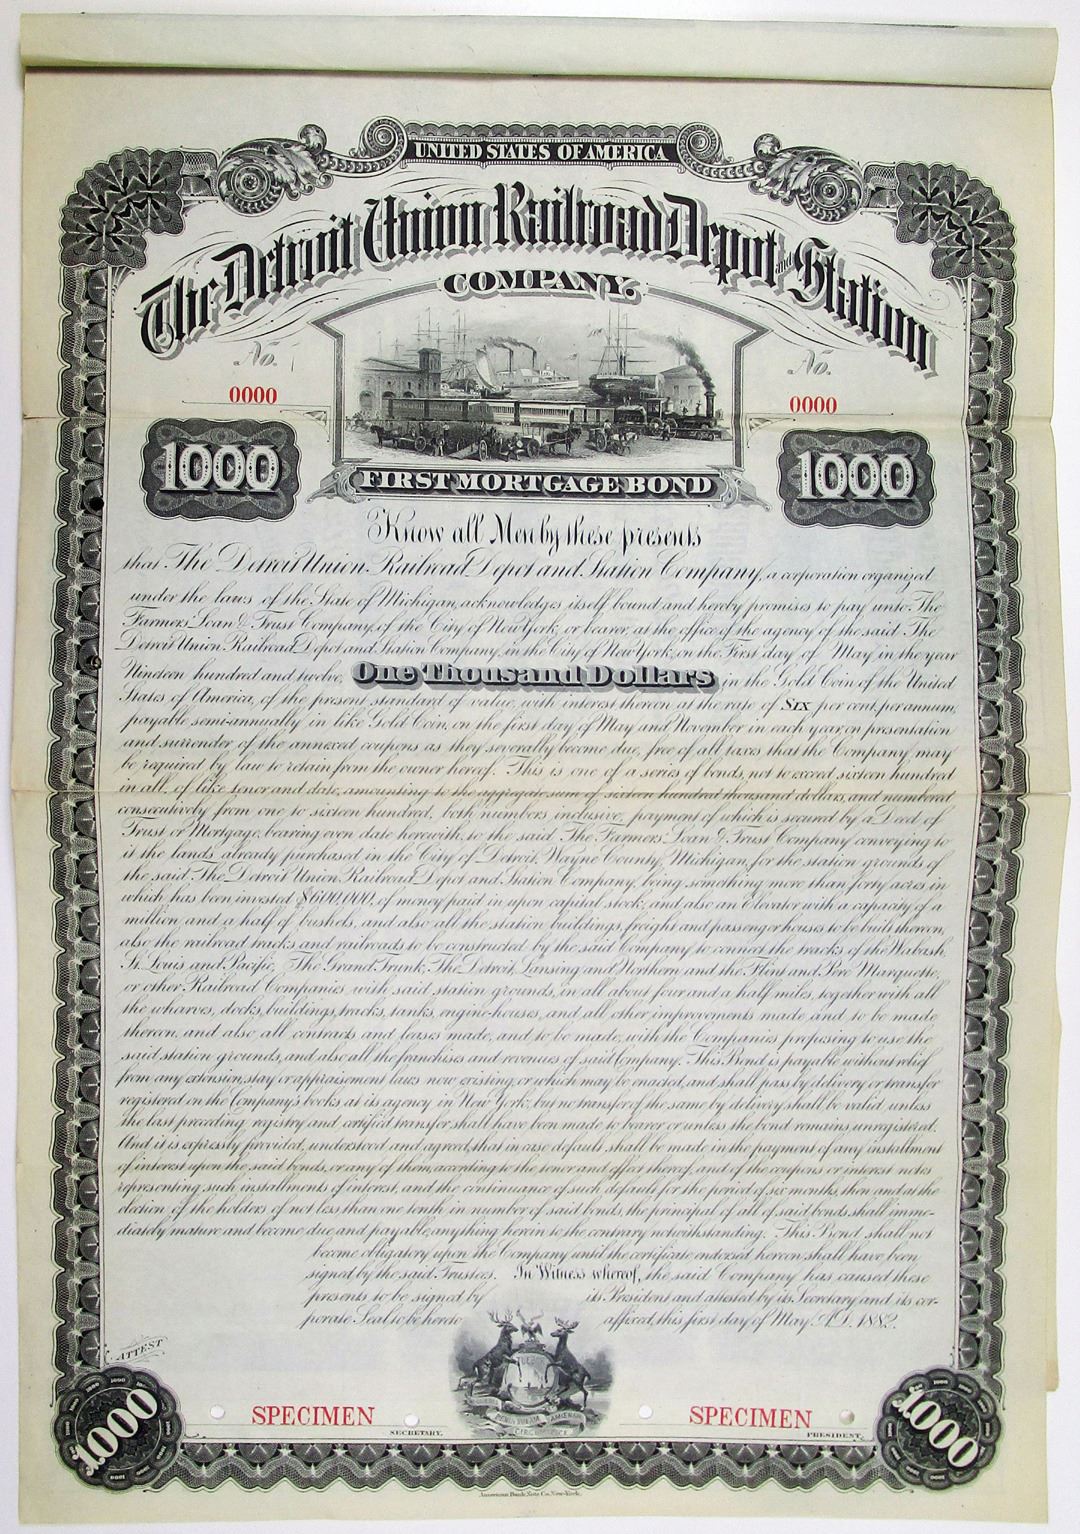 UNITED STATES OF AMERICA
The Detroit Union Railroad Depot and Station
COMPANY.
No. No.
0000 0000
1000 1000
FIRST MORTGAGE BOND
Know all Men by these presents
that The Detroit Union Railroad Depot and Station Company, a corporation organized
under the laws of the State of Michigan, acknowledges itself bound and hereby promises to pay unto The
Farmers' Loan & Trust Company, of the City of New York, or bearer, at the office of the agency of the said The
Detroit Union Railroad Depot and Station Company, in the City of New York, on the First day of May, in the year
Nineteen hundred and twelve, One Thousand Dollars in the Gold Coin of the United
States of America, of the present standard of value, with interest thereon at the rate of Six per cent. per annum,
payable semi-annually in like Gold Coin, on the first day of May and November in each year, on presentation
and surrender of the annexed coupons as they severally become due, free of all taxes that the Company may
be required by law to retain from the owner hereof. This is one of a series of bonds, not to exceed sixteen hundred
in all, of like tenor and date, amounting to the aggregate sum of sixteen hundred thousand dollars, and numbered
consecutively from one to sixteen hundred, both numbers inclusive, payment of which is secured by a Deed of
Trust or Mortgage, bearing even date herewith, to the said The Farmers' Loan & Trust Company conveying to
it the lands already purchased in the City of Detroit, Wayne County, Michigan, for the station grounds of
the said The Detroit Union Railroad Depot and Station Company, being something more than forty acres in
which has been invested $600,000, of money paid in upon capital stock; and also an Elevator with a capacity of a
million and a half of bushels, and also all the station buildings, freight and passenger houses to be built thereon,
also the railroad tracks and railroads to be constructed by the said Company to connect the tracks of the Wabash,
St. Louis and Pacific, The Grand Trunk, The Detroit, Lansing and Northern and the Flint and Pere Marquette,
or other Railroad Companies with said station grounds, in all about four and a half miles, together with all
the wharves, docks, buildings, tracks, tanks, engine-houses, and all other improvements made and to be made
thereon, and also all contracts and leases made, and to be made, with the Companies proposing to use the
said station grounds, and also all the franchises and revenues of said Company. This Bond is payable without relief
from any extension, stay or appraisement laws now existing, or which may be enacted, and shall pass by delivery or transfer
registered on the Company's books at its agency in New York, but no transfer of the same by delivery shall be valid unless
the last preceding registry and certified transfer shall have been made to bearer or unless the bond remains unregistered.
And it is expressly provided, understood and agreed, that in case default shall be made in the payment of any installment
of interest upon the said bonds, or any of them, according to the tenor and effect thereof, and of the coupons or interest notes
representing such installments of interest, and the continuance of such default for the period of six months, then and at the
election of the holders of not less than one tenth in number of said bonds, the principal of all of said bonds shall imme-
diately mature and become due and payable, anything herein to the contrary notwithstanding. This Bond shall not
become obligatory upon the Company until the certificate endorsed hereon shall have been
signed by the said Trustees. In Witness whereof, the said Company has caused these
presents to be signed by its President and attested by its Secretary and its cor-
porate Seal to be hereto affixed, this first day of May, A.D. 1882.
ATTEST
TUEBOR
SPECIMEN SPECIMEN
SECRETARY. PRESIDENT.
1000 1000
American Bank Note Co. New-York.